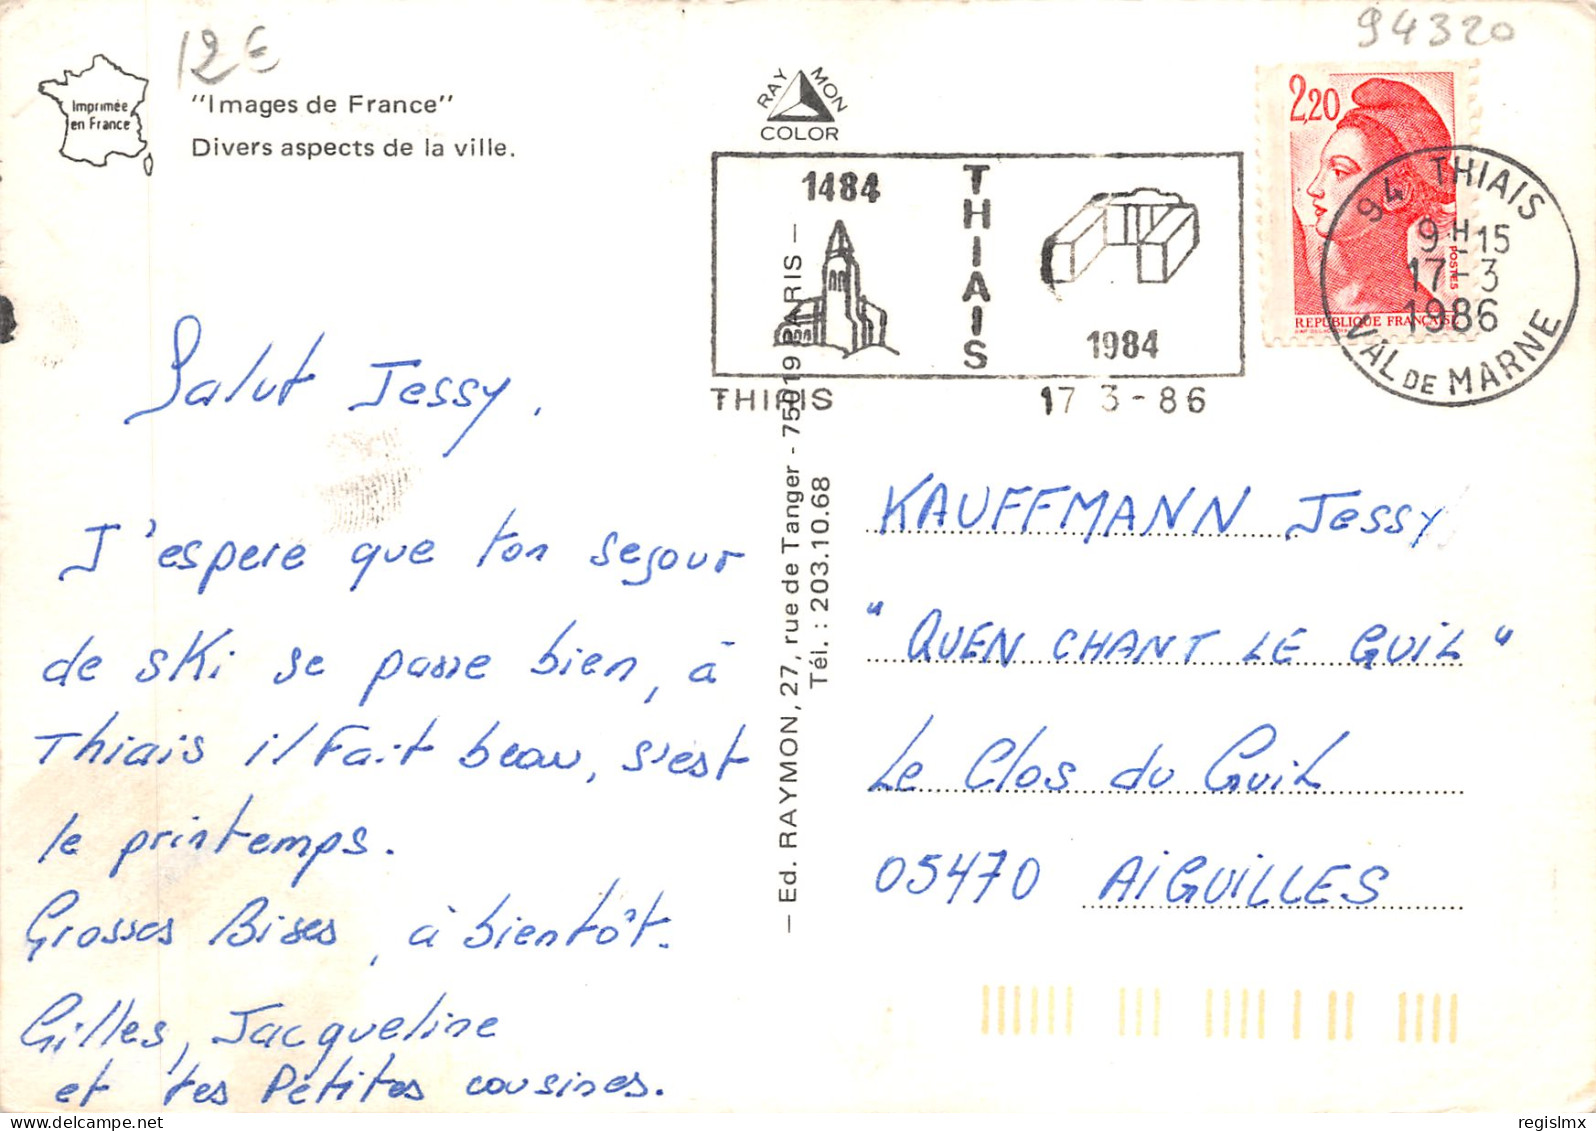 12€
94320
Imprimée
en France
"Images de France"
Divers aspects de la ville.
RAYMON
COLOR
2,20
POSTES
REPUBLIQUE FRANÇAISE
1484
THIAIS
1984
THIAIS
17 3-86
94 THIAIS
9H-15
17-3
1986
VAL DE MARNE
Salut Jessy,
J'espere que ton sejour
de ski se passe bien, à
Thiais il fait beau, s'est
le printemps.
Grosses Bises, à bientôt.
Gilles, Jacqueline
et tes Petites cousines.
— Ed. RAYMON, 27, rue de Tanger - 75019 PARIS —
Tél. : 203.10.68
KAUFFMANN Jessy
"QUEN CHANT LE GUIL"
Le Clos du Guil
05470 AIGUILLES
regislmx